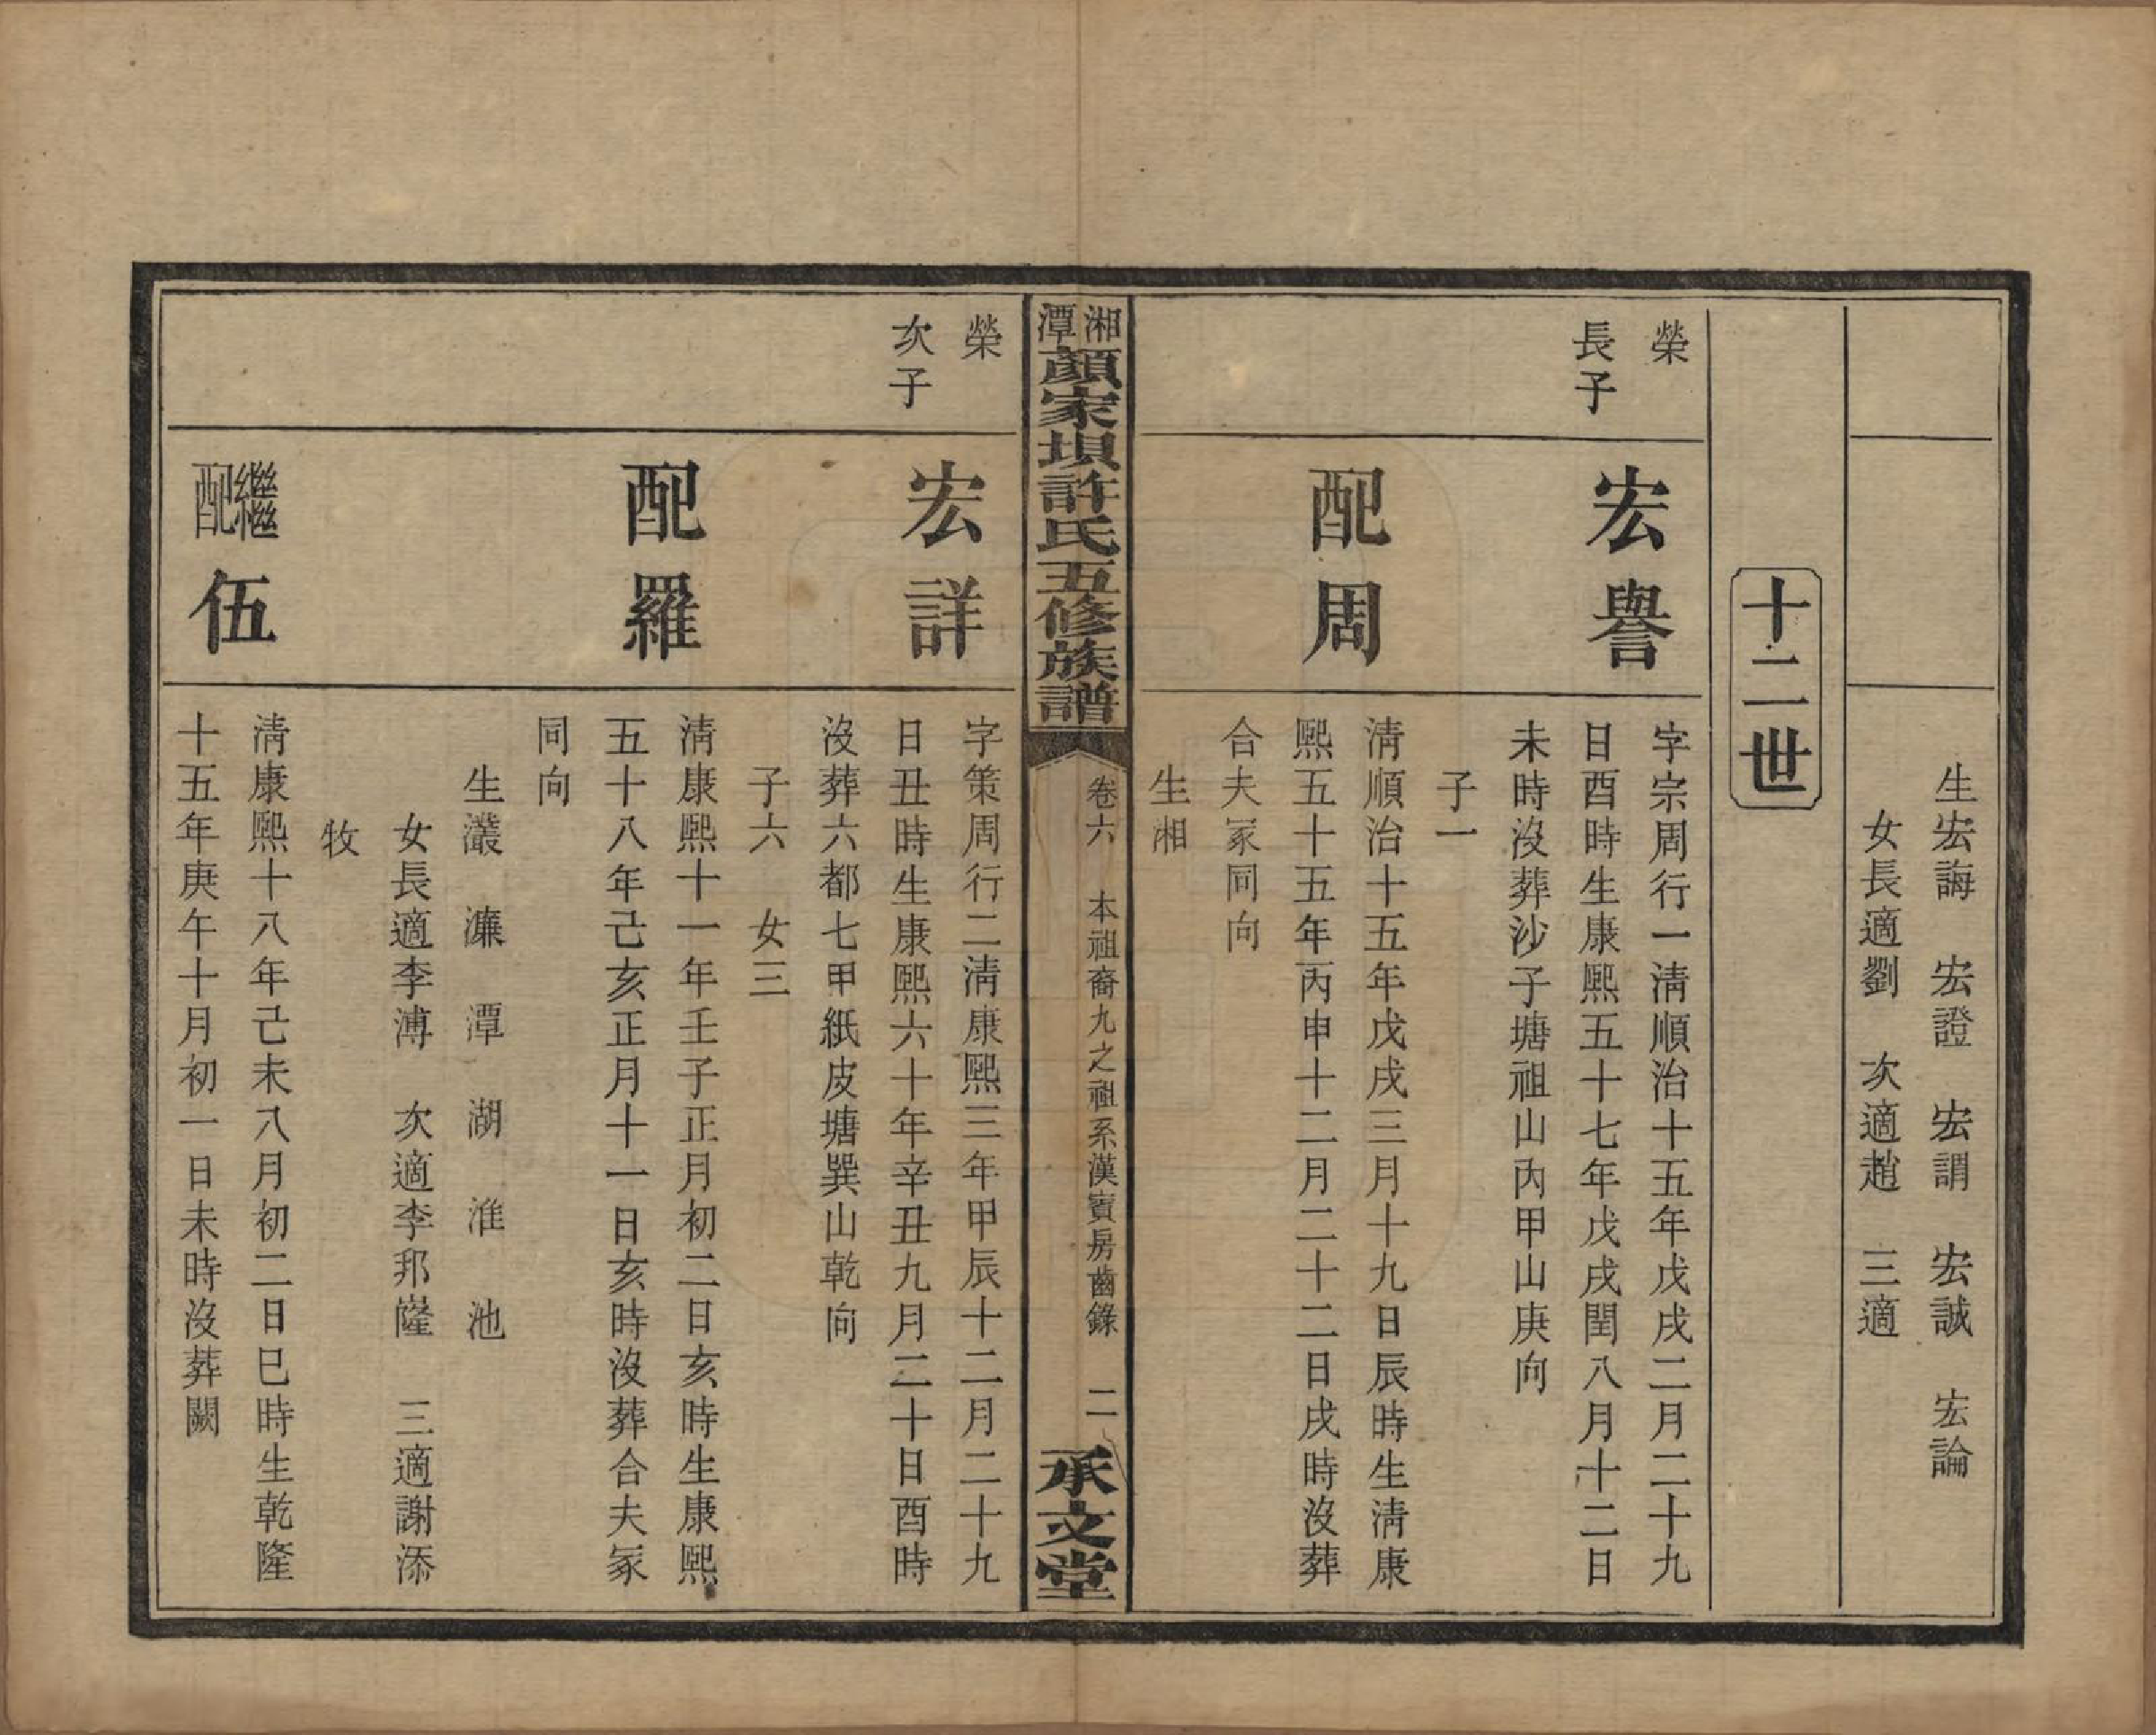 生宏誨　宏證　宏謂　宏誠　宏論
女長適劉　次適趙　三適
十二世
榮
長子
宏譽
字宗周行一淸順治十五年戊戌二月二十九
日酉時生康熙五十七年戊戌閏八月十二日
未時沒葬沙子塘祖山內甲山庚向
子一
配周
淸順治十五年戊戌三月十九日辰時生淸康
熙五十五年丙申十二月二十二日戌時沒葬
合夫冢同向
生湘
湘潭顏家垻許氏五修族譜
卷六　本祖裔九之祖系漢賓房齒錄　二
承文堂
榮
次子
宏詳
字策周行二淸康熙三年甲辰十二月二十九
日丑時生康熙六十年辛丑九月二十日酉時
沒葬六都七甲紙皮塘巽山乾向
子六　女三
配羅
淸康熙十一年壬子正月初二日亥時生康熙
五十八年己亥正月十一日亥時沒葬合夫冢
同向
生灇　濂　潭　湖　淮　池
女長適李溥　次適李邦嶐　三適謝添
牧
繼配伍
淸康熙十八年己未八月初二日巳時生乾隆
十五年庚午十月初一日未時沒葬闕